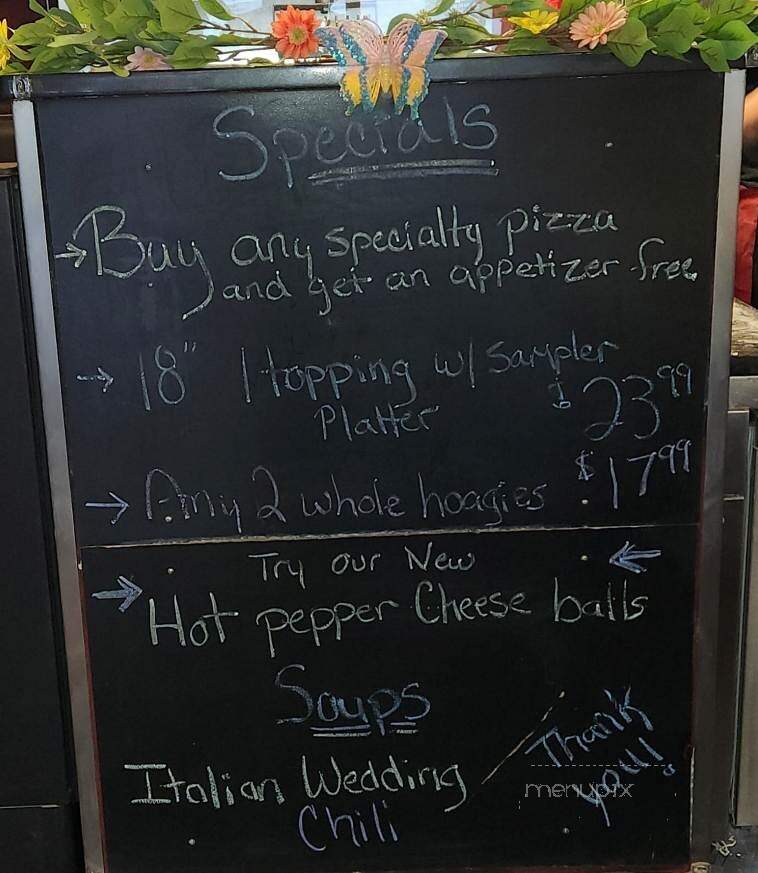 Specials
→ Buy any specialty pizza
and get an appetizer free
→ 18" 1 topping w/ Sampler
Platter $23.99
→ Any 2 whole hoagies $17.99
Try our New
→ Hot pepper Cheese balls ←
Soups
Italian Wedding
Chili
Thank
you!
menupix